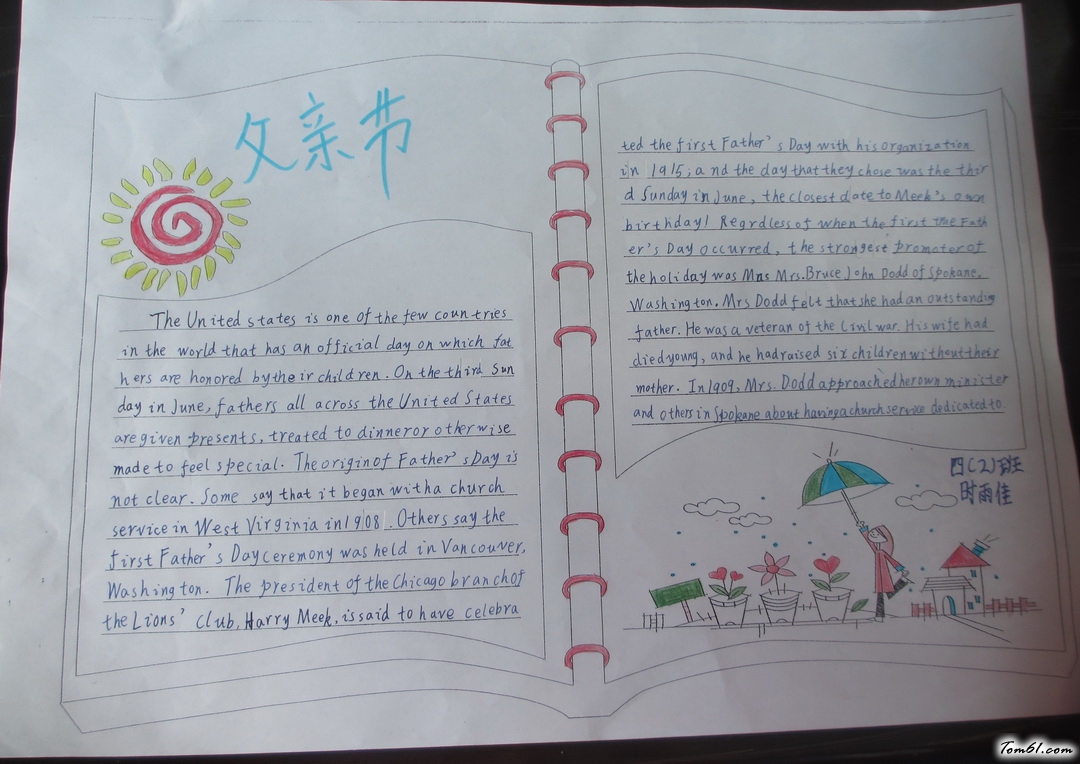 父亲节
The United states is one of the few coun tries
in the world that has an official day on which fat
hers are honored by the ir children. On the third Sun
day in June, fathers all across the United States
are given presents, treated to dinner or otherwise
made to feel special. The origin of Father's Day is
not clear. Some say that it began with a church
service in West Virginia in 1908. Others say the
first Father's Day ceremony was held in Vancouver,
Washington. The president of the Chicago branch of
the Lions' Club, Harry Meek, is said to have celebra
ted the first Father's Day with his organization
in 1915; a nd the day that they chose was the thir
d Sunday in June, the closest date to Meek's own
birthday! Regrdless of when the first true Fath
er's Day occurred, the strongest promoter of
the holiday was Mns Mrs. Bruce John Dodd of Spokane,
Washington. Mrs Dodd felt that she had an outstanding
father. He was a veteran of the Civil war. His wife had
died young, and he had raised six children without their
mother. In 1909, Mrs. Dodd approached her own minister
and others in Spokane about having a church service dedicated to.
四(2)班
时雨佳
Tom61.com